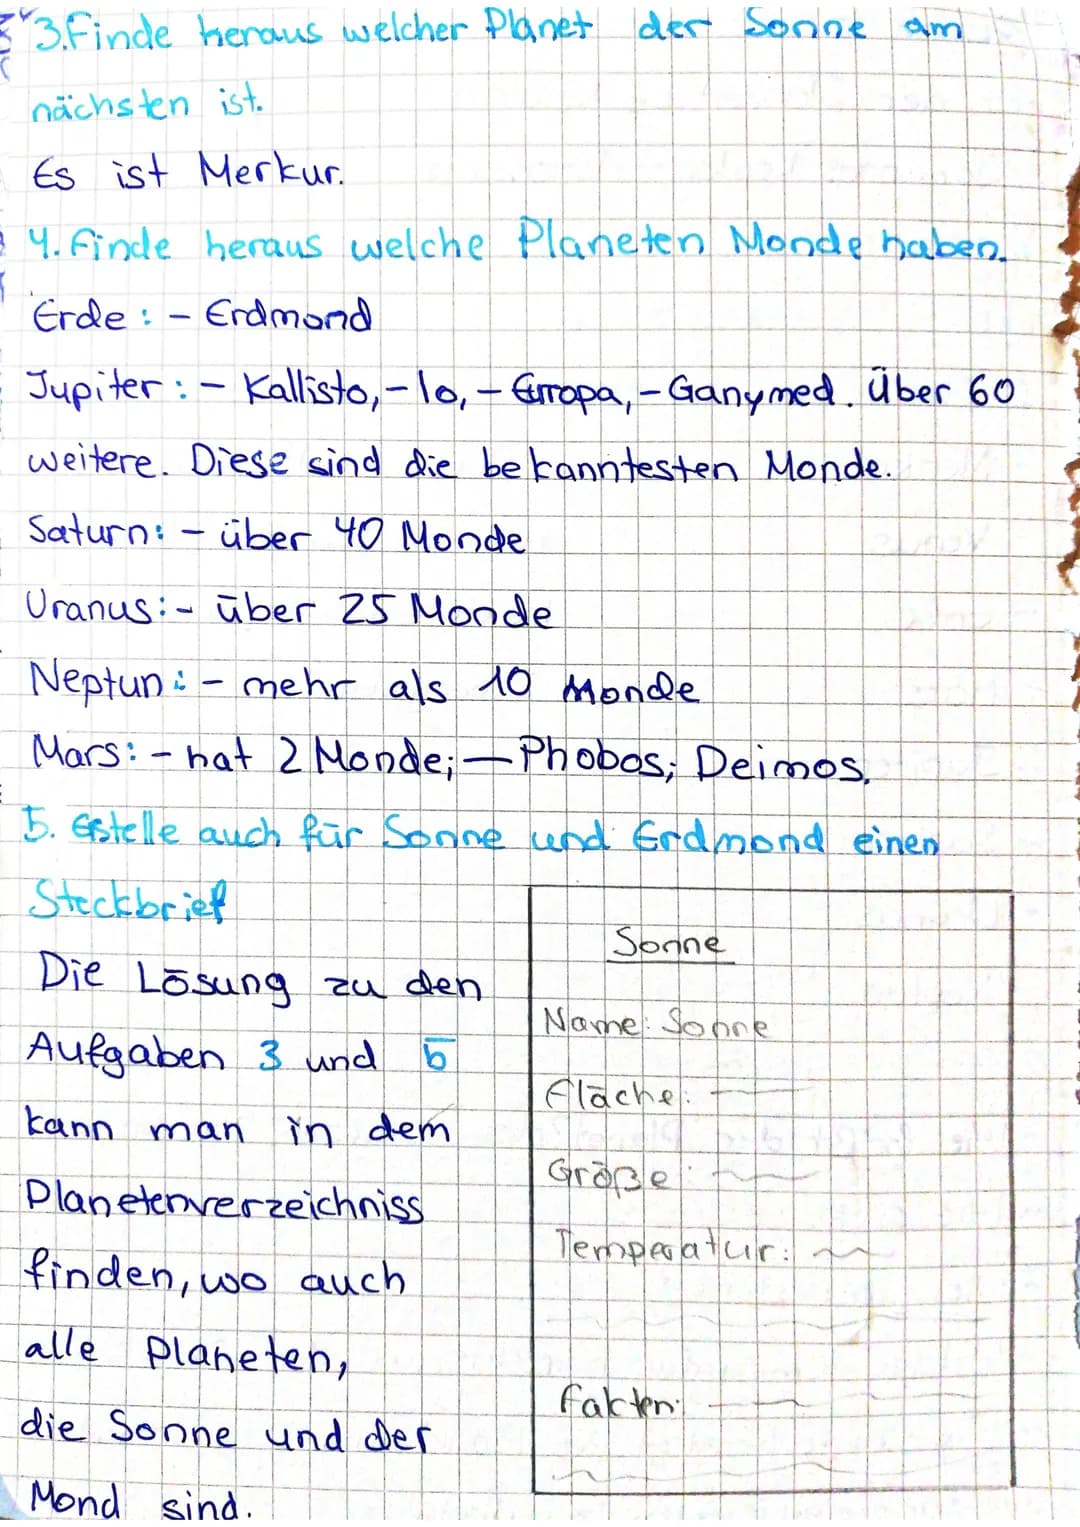 3. Finde heraus welcher Planet der Sonne am
nächsten ist.
Es ist Merkur.
4. Finde heraus welche Planeten Monde haben.
Erde: - Erdmond
Jupiter: - Kallisto, - Io, - Europa, - Ganymed. Über 60
weitere. Diese sind die bekanntesten Monde.
Saturn: - über 40 Monde
Uranus: - über 25 Monde
Neptun: - mehr als 10 Monde
Mars: - hat 2 Monde; - Phobos; Deimos.
5. Estelle auch für Sonne und Erdmond einen
Steckbrief
Die Lösung zu den
Aufgaben 3 und 5
kann man in dem
Planetenverzeichniss
finden, wo auch
alle Planeten,
die Sonne und der
Mond sind.
Sonne
Name: Sonne
Fläche:
Größe:
Temperatur:
Fakten: